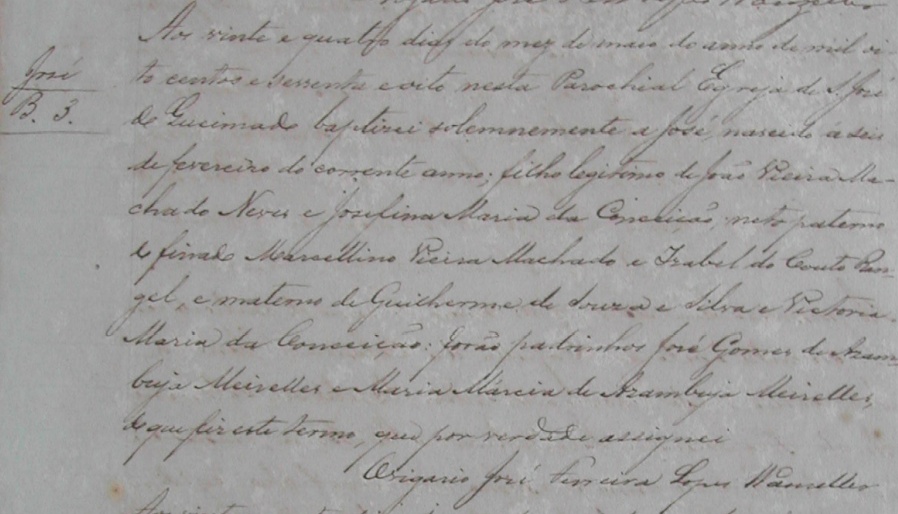 Aos vinte e quatro dias do mez de maio do anno de mil oi-
to centos e sessenta e oito nesta Parochial Egreja de S. José
José
B. 3.
do Queimado baptizei solemnemente a José, nascido á seis
de fevereiro do corrente anno; filho legitimo de João Vieira Ma-
chado Neves e Josefina Maria da Conceição, neto paterno
do finado Marcellino Vieira Machado e Izabel do Couto Ran-
gel, e materno de Guilherme de Souza e Silva e Victoria
Maria da Conceição: forão padrinhos José Gomes de Azam-
buja Meirelles e Maria Márcia de Azambuja Meirelles,
do que fiz este termo, que por verdade assignei
O vigario José Ferreira Lopes